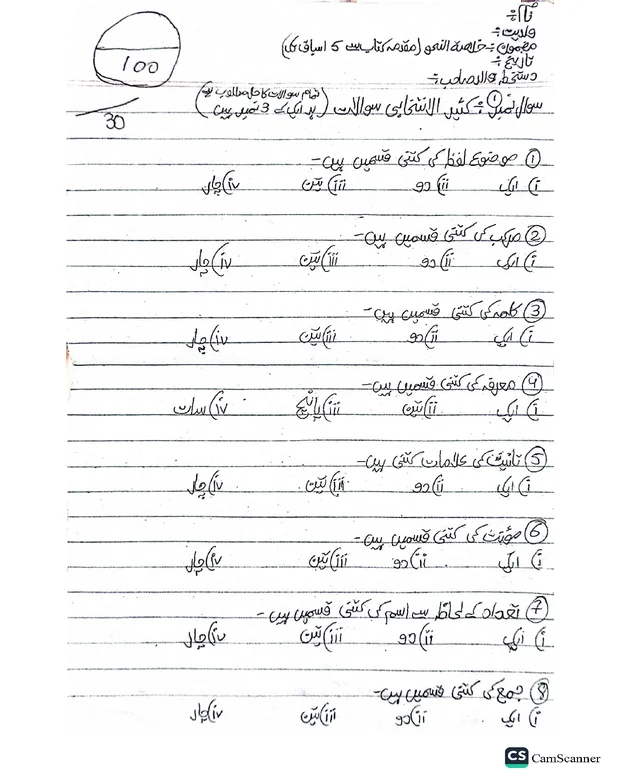 نام:-
ولدیت:-
مضمون:- خلاصۃ النحو (مقدمہ کتاب سے 5 اسباق تک)
تاریخ:-
دستخط والد صاحب:-
100
30
سوال نمبر ①:- کثیر الانتخابی سوالات (تمام سوالات کا حل مطلوب ہے ہر ایک کے 3 نمبر ہیں)
① موضوع لفظ کی کتنی قسمیں ہیں-
i) ایک ii) دو iii) تین iv) چار
② مرکب کی کتنی قسمیں ہیں-
i) ایک ii) دو iii) تین iv) چار
③ کلمہ کی کتنی قسمیں ہیں-
i) ایک ii) دو iii) تین iv) چار
④ معرفہ کی کتنی قسمیں ہیں-
i) ایک ii) تین iii) پانچ iv) سات
⑤ تانیث کی علامات کتنی ہیں-
i) ایک ii) دو iii) تین iv) چار
⑥ مؤنث کی کتنی قسمیں ہیں-
i) ایک ii) دو iii) تین iv) چار
⑦ تعداد کے لحاظ سے اسم کی کتنی قسمیں ہیں-
i) ایک ii) دو iii) تین iv) چار
⑧ جمع کی کتنی قسمیں ہیں-
i) ایک ii) دو iii) تین iv) چار
CS CamScanner